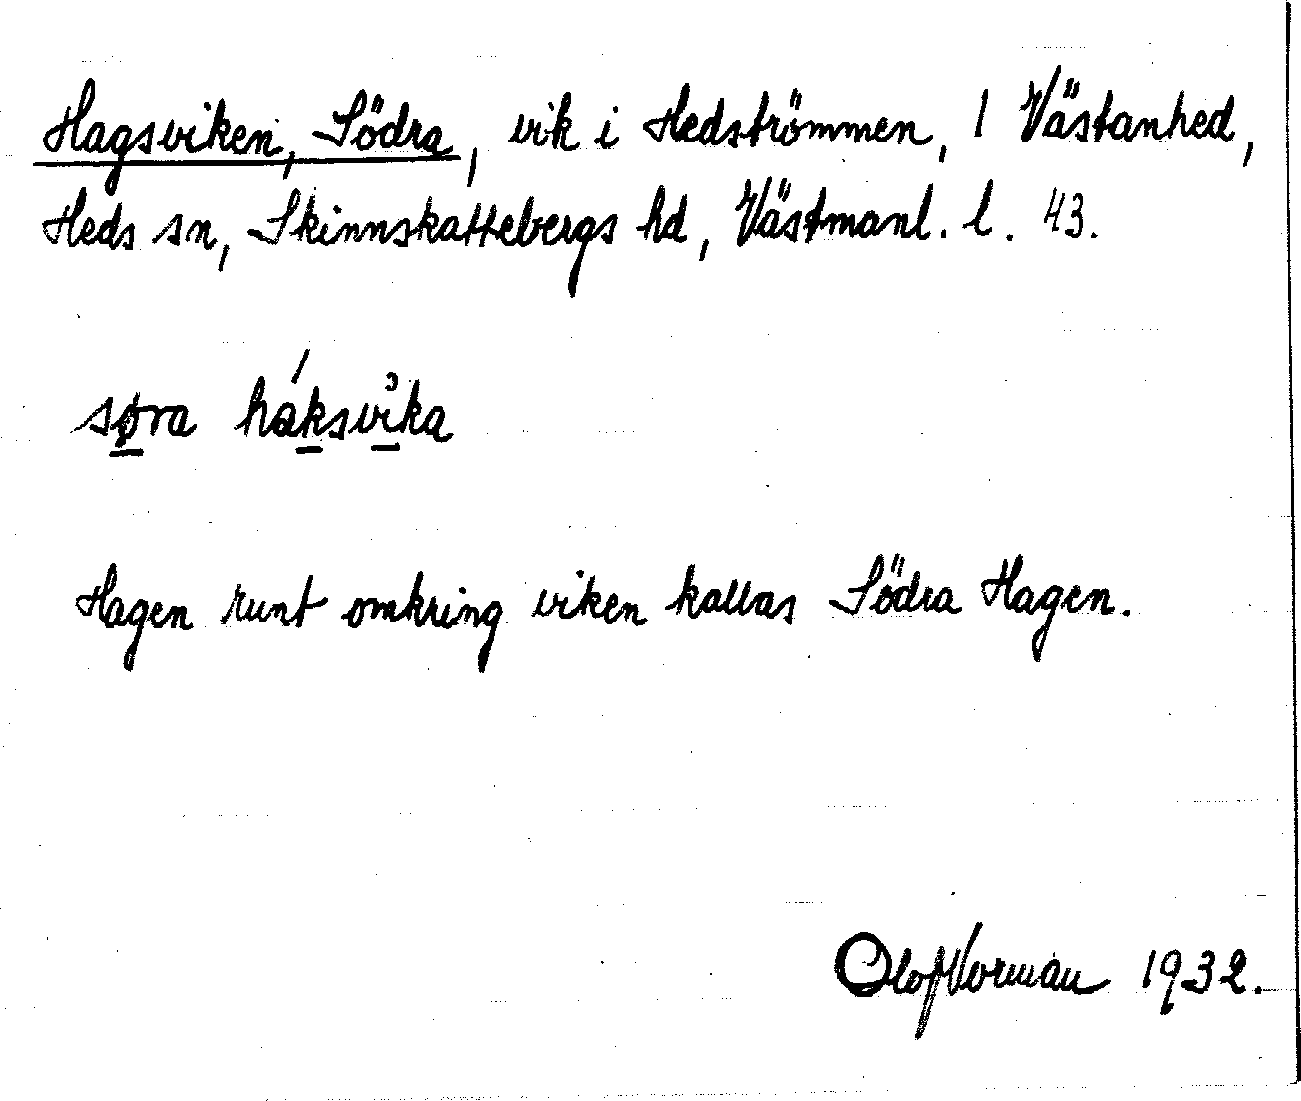 Hagsviken, Södra, vik i Hedströmmen, 1 Västanhed,
Heds sn, Skinnskattebergs hd, Västmanl. l. 43.
søra háksvìka
Hagen runt omkring viken kallas Södra Hagen.
Olof Norman 1932.